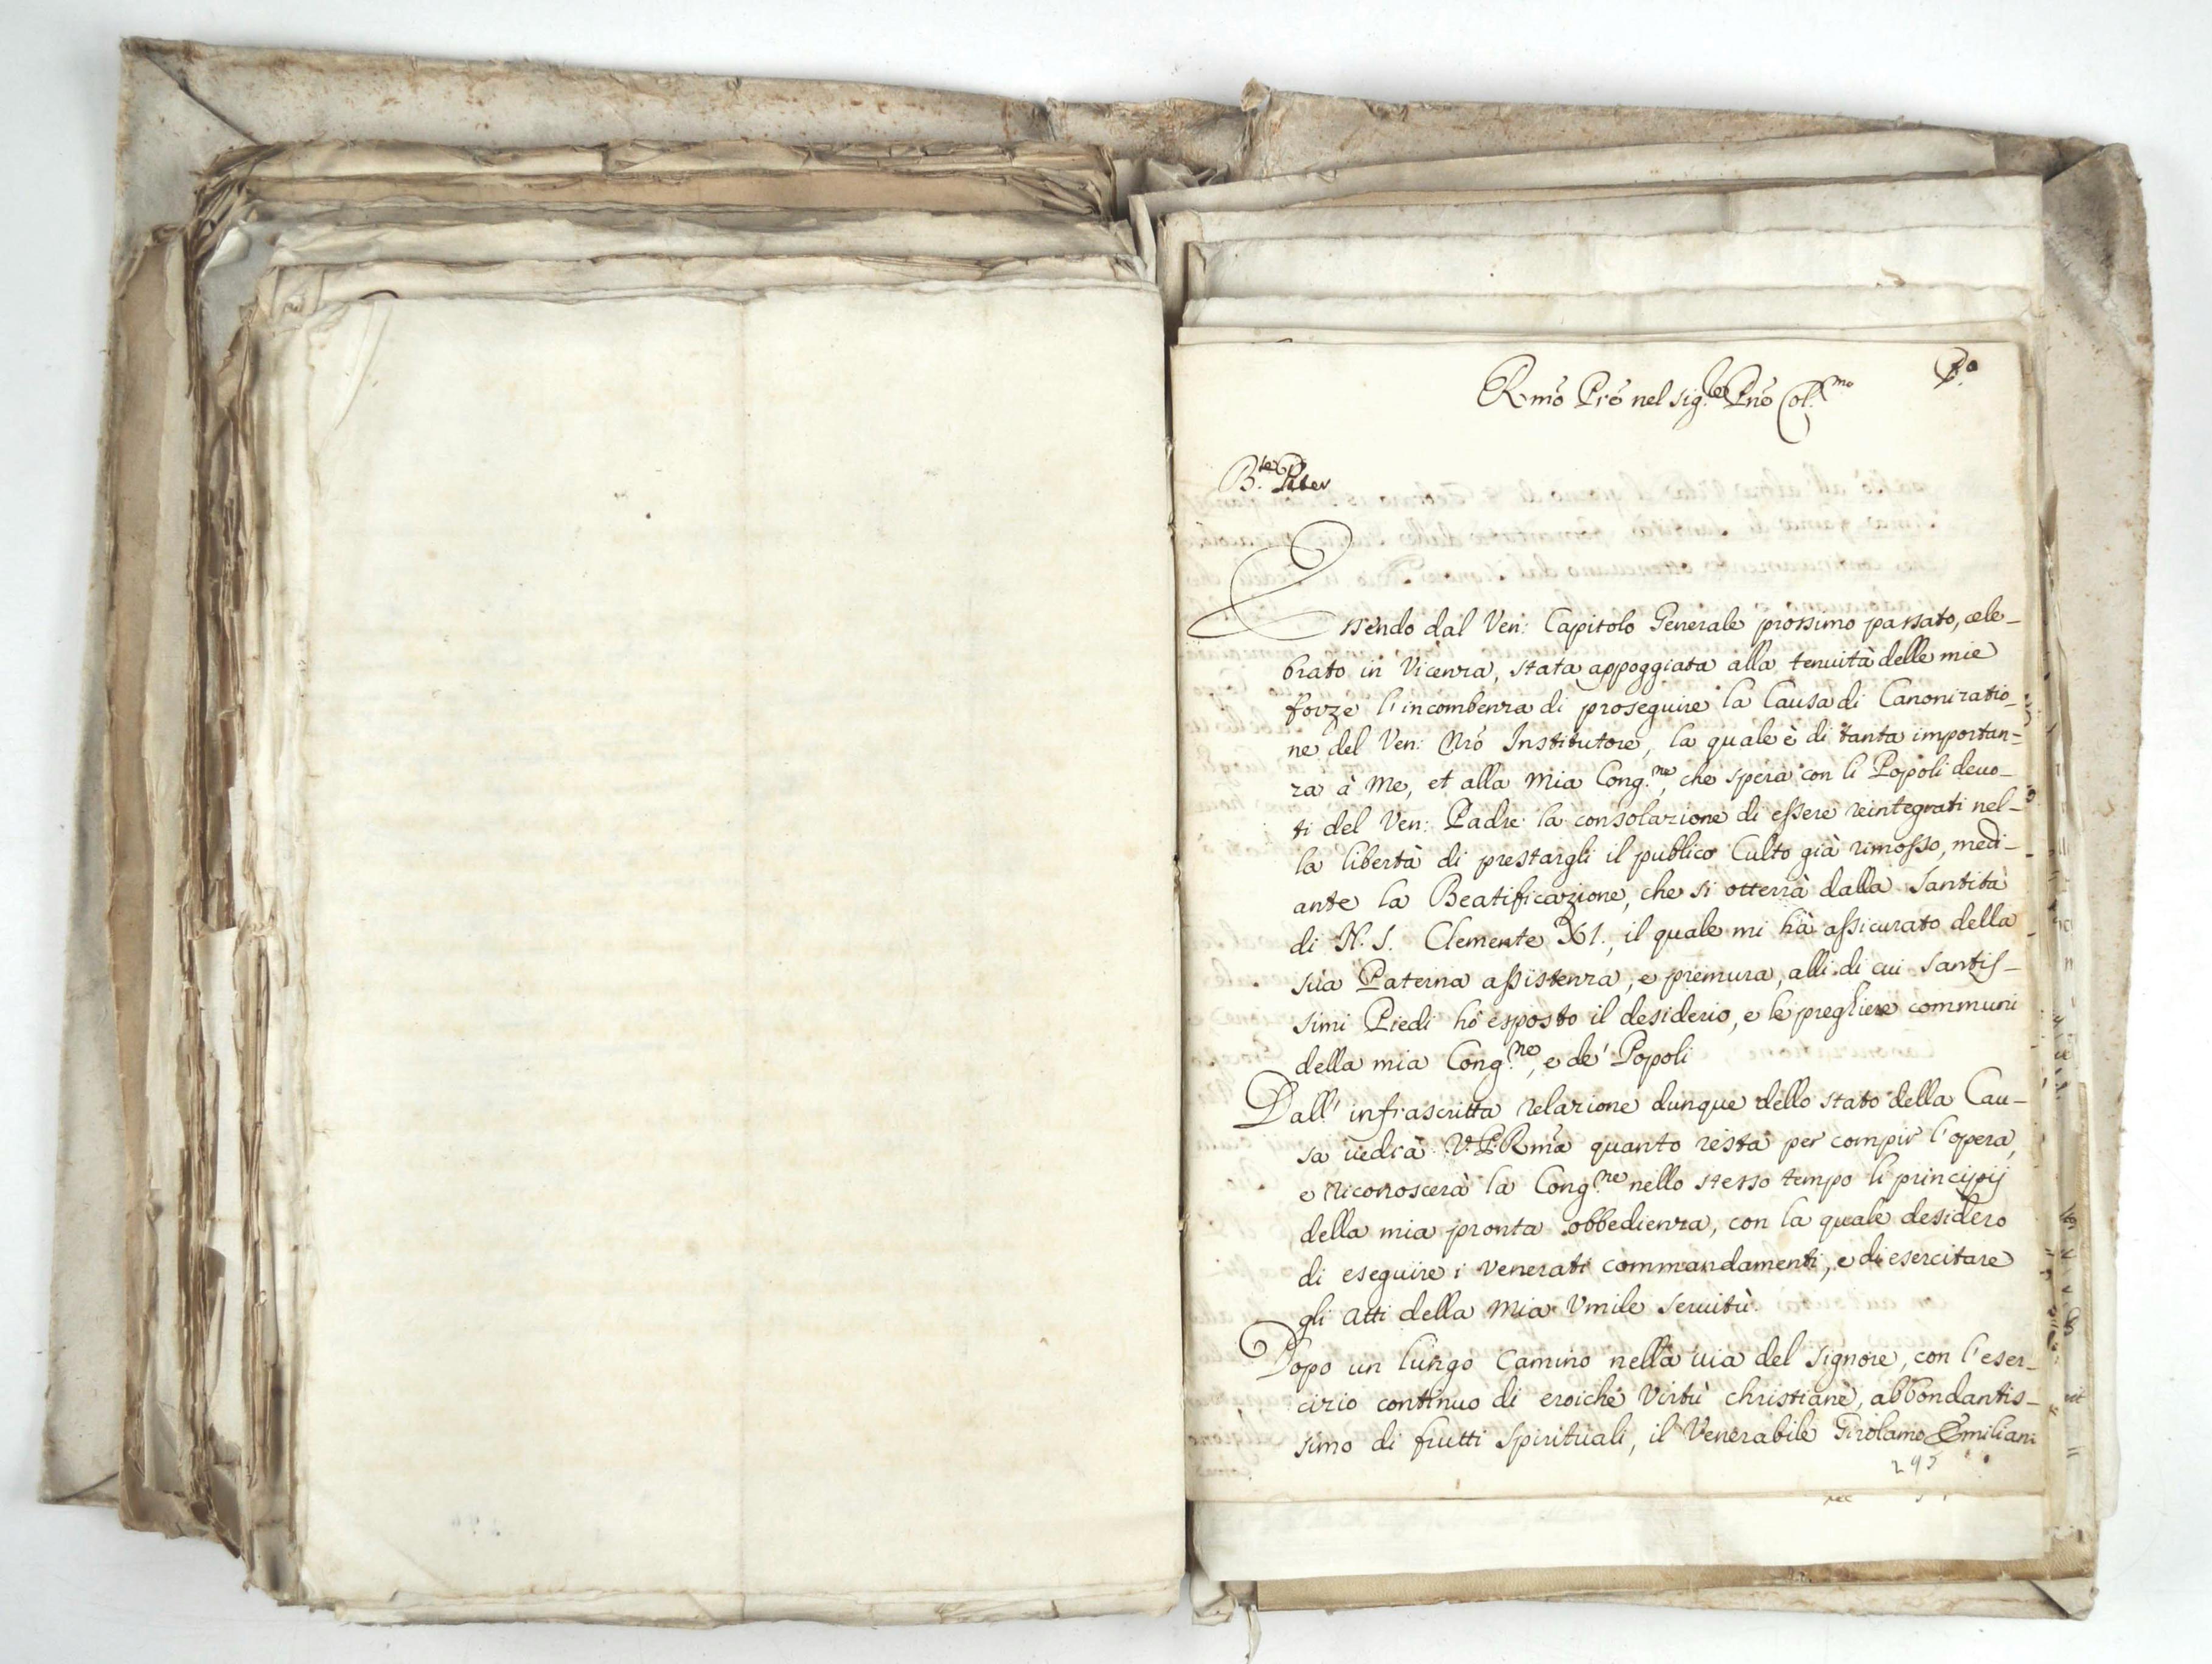 Rmo Pre nel Sig.re Pne Col.mo
B.te Pater
Essendo dal Ven: Capitolo Generale prossimo passato, cele-
brato in Vicenza, stata appoggiata alla tenuità delle mie
forze l'incombenza di proseguire la Causa di Canonizatio-
ne del Ven: Nro Institutore, la quale è di tanta importan=
za à me, et alla mia Cong.ne, che spera con li Popoli deuo-
ti del Ven: Padre la consolazione di essere reintegrati nel-
la libertà di prestargli il publico Culto già rimosso, medi-
ante la Beatificazione, che si otterrà dalla Santità
di N. S. Clemente XI., il quale mi hà assicurato della
sua Paterna assistenza, e premura, alli di cui Santis-
simi Piedi hò esposto il desiderio, e le preghiere communi
della mia Cong.ne, e de' Popoli
Dall' infrascritta relazione dunque dello stato della Cau-
sa uedrà V. P. Rma quanto resta per compir l'opera,
e riconoscerà la Cong.ne nello stesso tempo li principij
della mia pronta obbedienza, con la quale desidero
di eseguire i venerati commandamenti, e di esercitare
gli atti della mia Vmile seruitù.
Dopo un lungo Camino nella uia del Signore, con l'eser-
cizio continuo di eroiche Virtù christiane, abbondantis-
simo di frutti Spirituali, il Venerabile Girolamo Emiliani
295